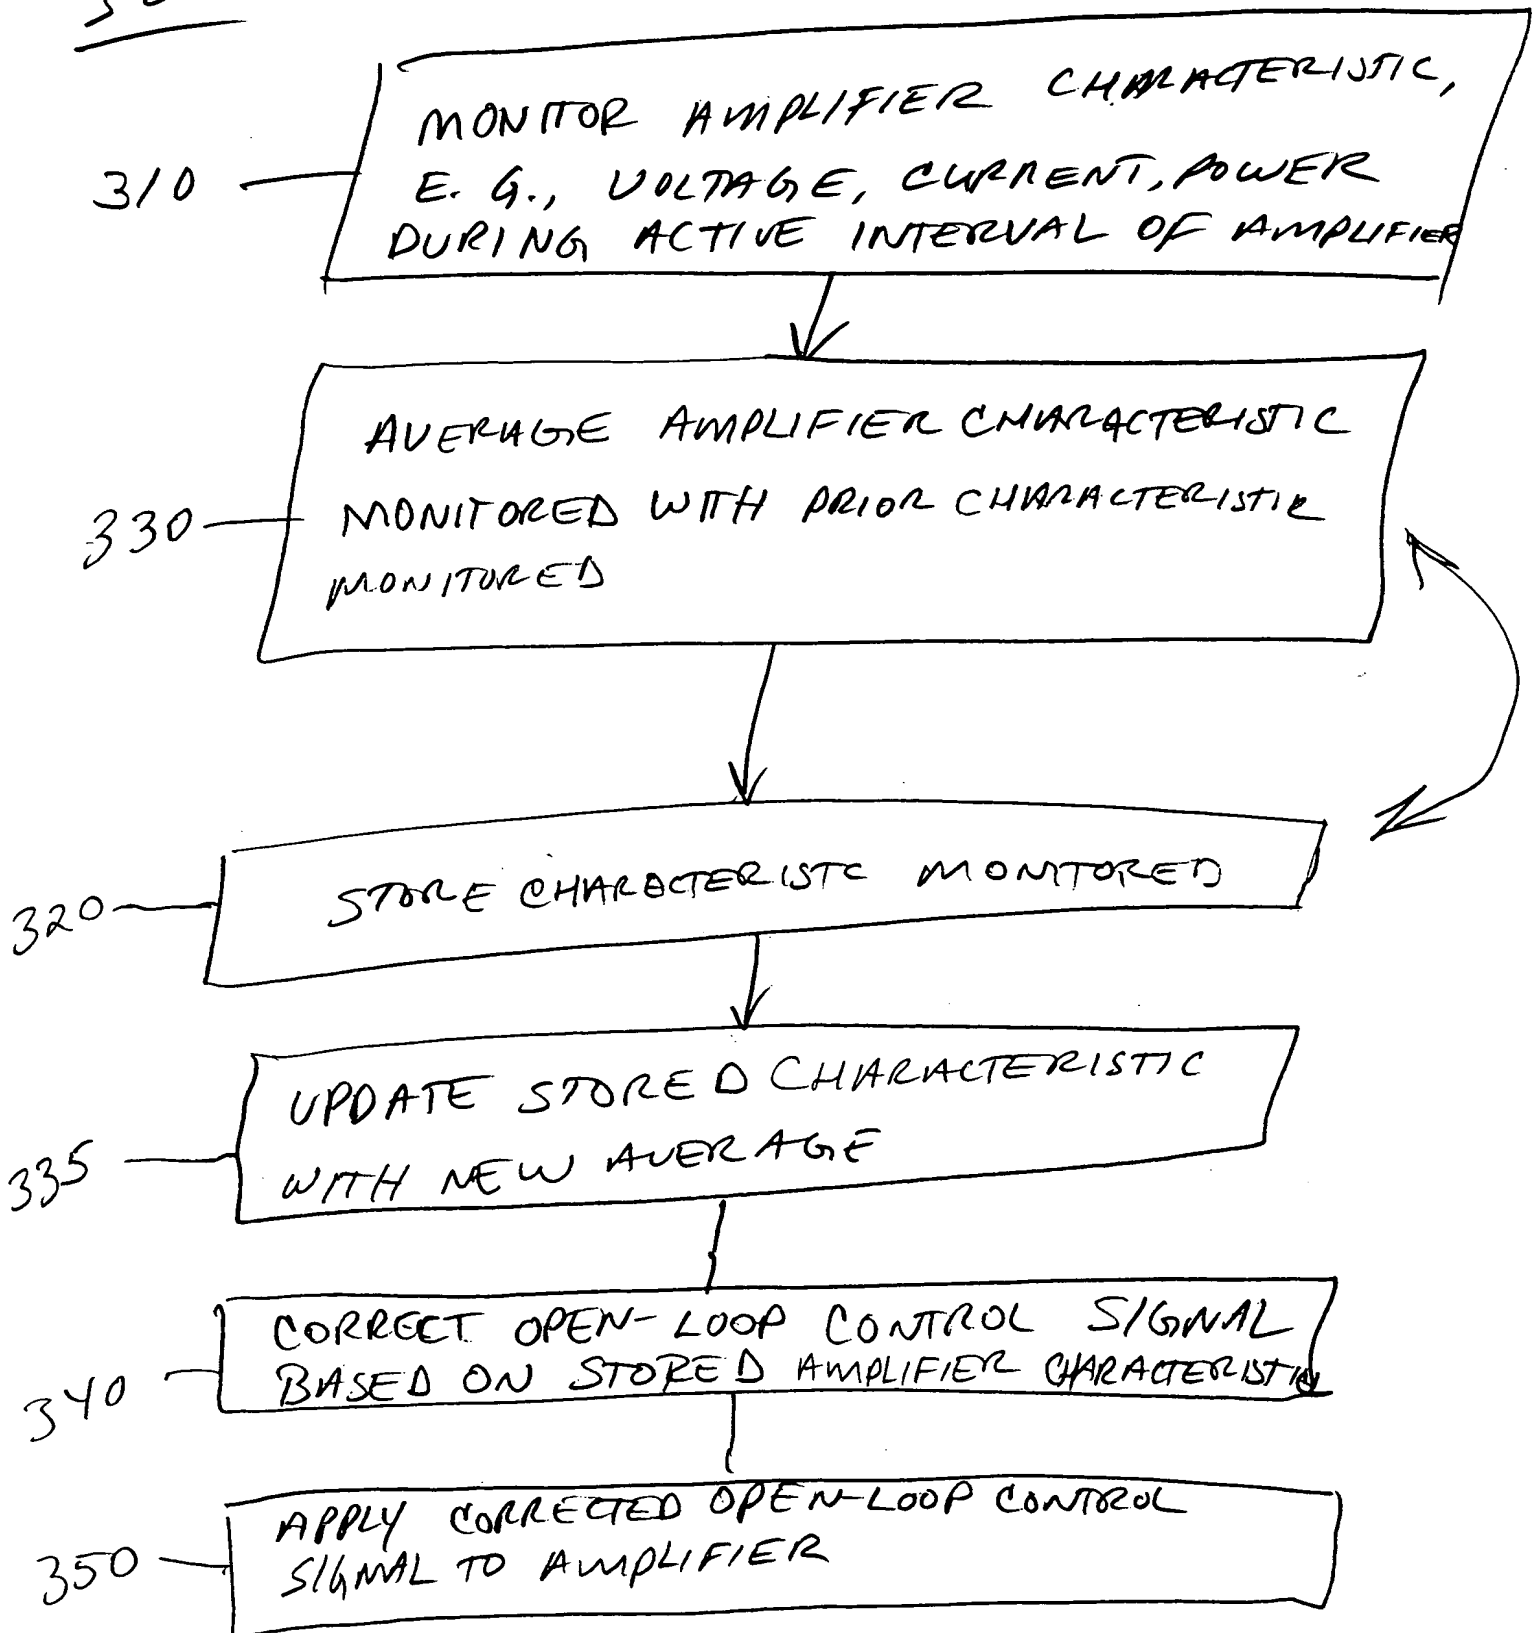 310
MONITOR AMPLIFIER CHARACTERISTIC,
E. G., VOLTAGE, CURRENT, POWER
DURING ACTIVE INTERVAL OF AMPLIFIER
330
AVERAGE AMPLIFIER CHARACTERISTIC
MONITORED WITH PRIOR CHARACTERISTIC
MONITORED
320
STORE CHARACTERISTC MONITORED
335
UPDATE STORED CHARACTERISTIC
WITH NEW AVERAGE
340
CORRECT OPEN-LOOP CONTROL SIGNAL
BASED ON STORED AMPLIFIER CHARACTERISTIC
350
APPLY CORRECTED OPEN-LOOP CONTROL
SIGNAL TO AMPLIFIER